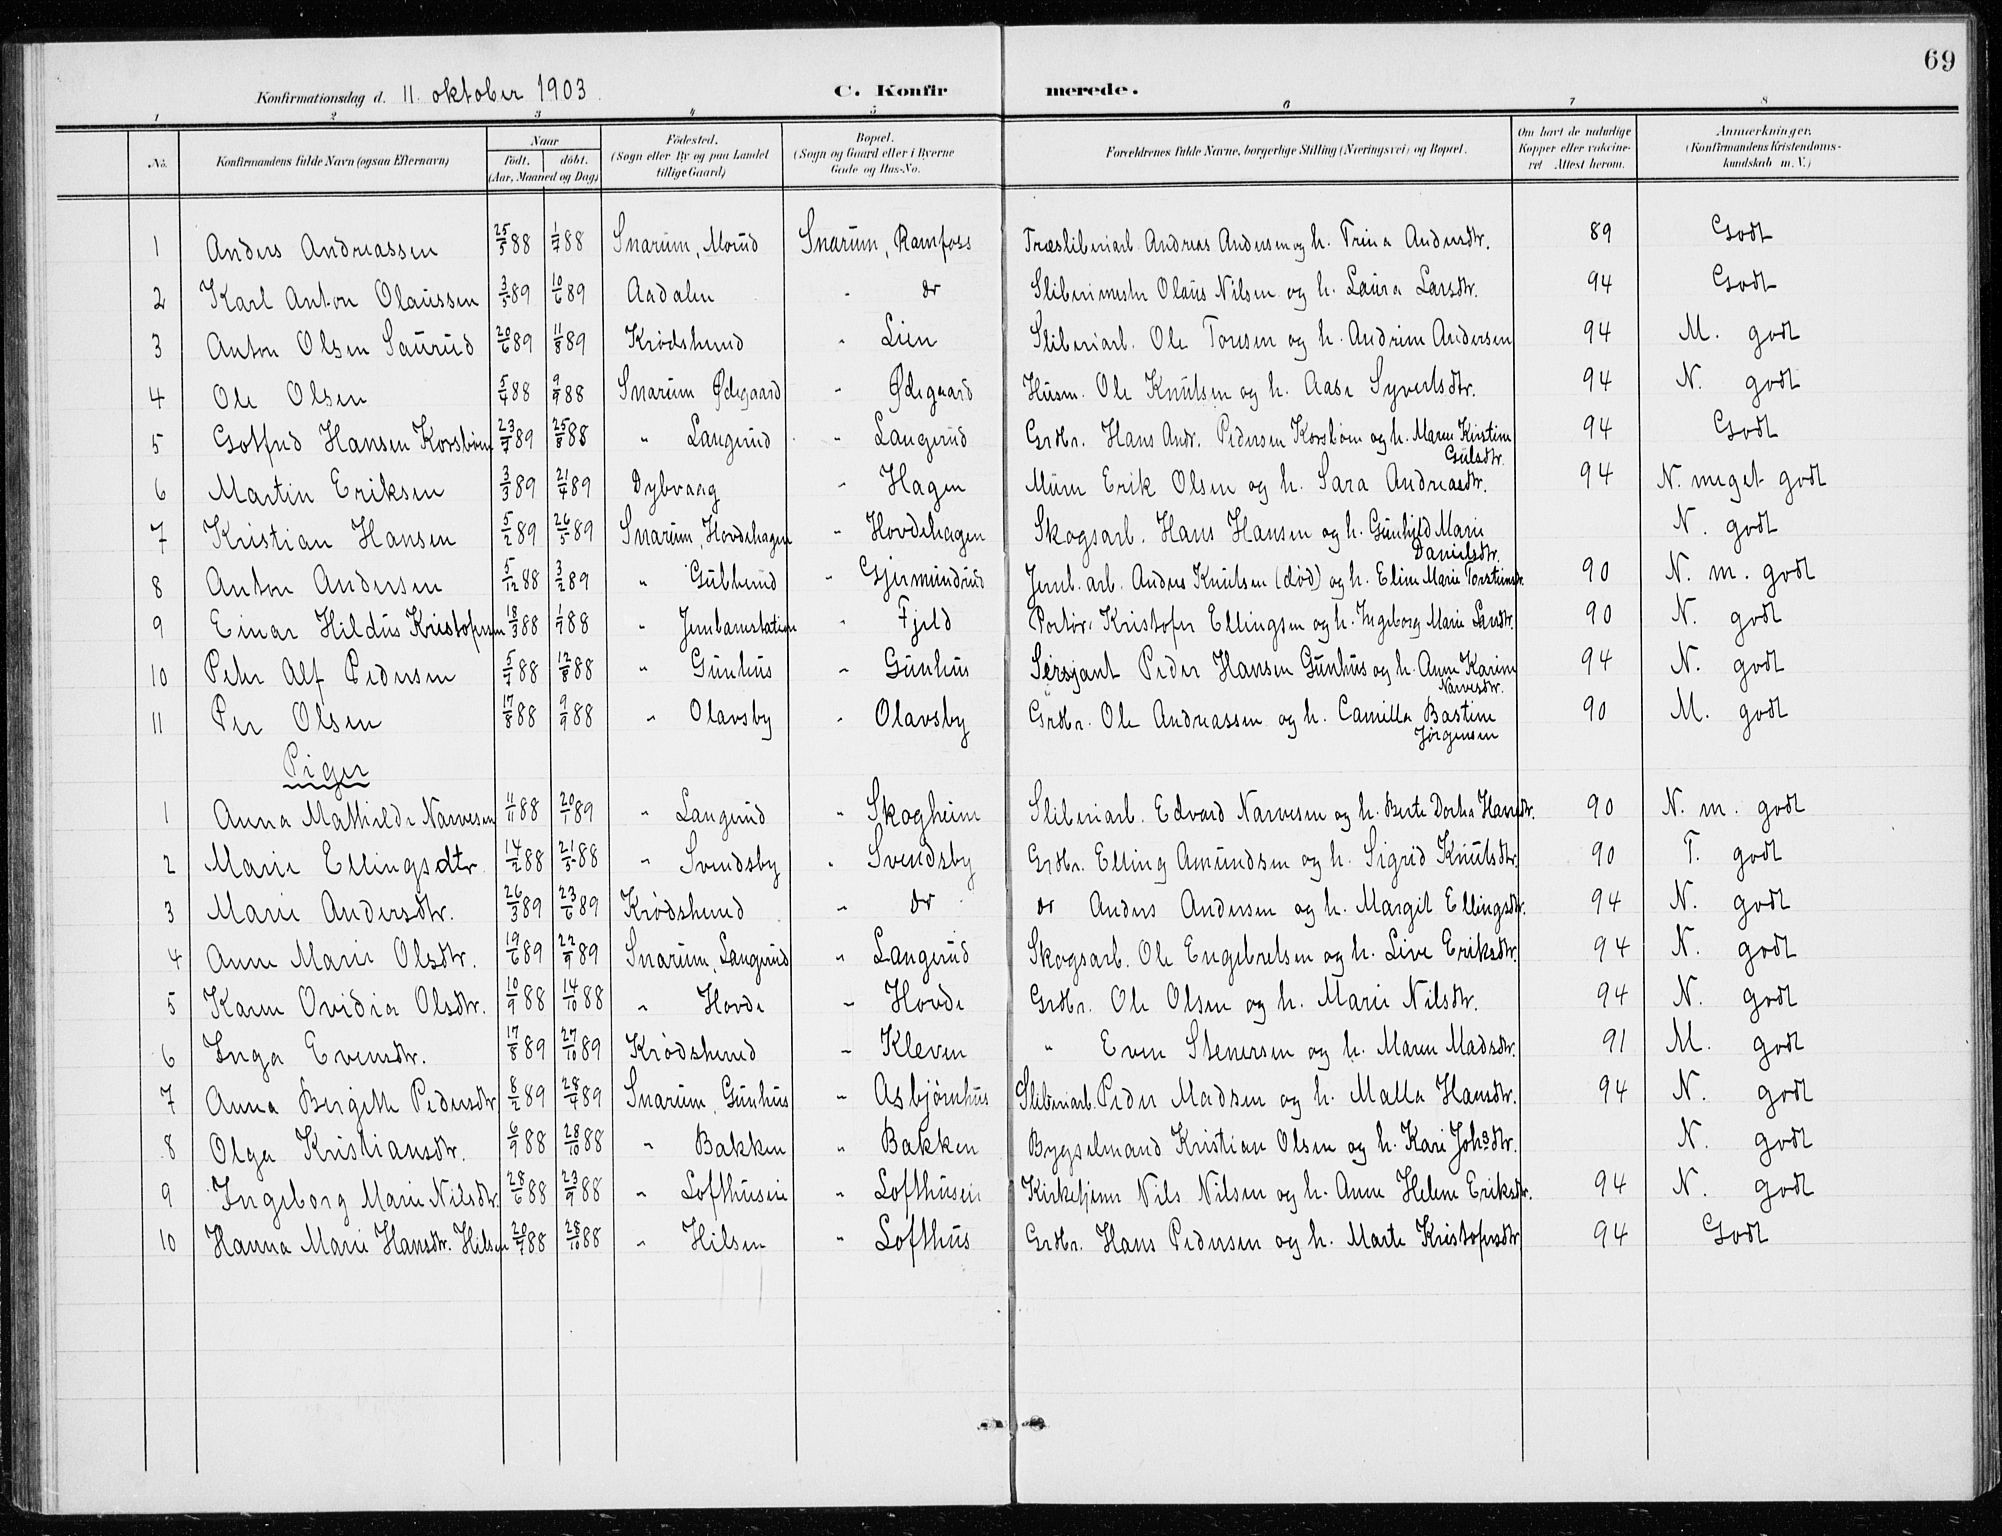 69
Konfirmationsdag d. 11. oktober 1903. C. Konfirmerede.
1 2 3 4 5 6 7 8
No. Konfirmandens fulde Navn (ogsaa Efternavn) Naar födt. döbt. (Aar, Maaned og Dag) Födested. (Sogn eller By og paa Landet tillige Gaard) Bopæl. (Sogn og Gaard eller i Byerne Gade og Hus-No. Forældrenes fulde Navne, borgerlige Stilling (Næringsvei) og Bopæl. Om havt de naturlige Kopper eller vakcineret Attest herom. Anmærkninger, (Konfirmandens Kristendomskundskab m. V.)
1 Anders Andreassen 25/5 88 1/7 88 Snarum, Morud Snarum, Ramfoss Træsliberiarb. Andreas Andersen og h. Trina Andersdtr. 89 Godt
2 Karl Anton Olaussen 3/5 89 10/6 89 Aadalen " do Sliberimester Olaus Nilsen og h. Laura Larsdtr. 94 Godt
3 Anton Olsen Saurud 20/6 89 11/8 89 Krødsherred " Lien Sliberiarb. Ole Toresen og h. Andrine Andersen 94 M. godt
4 Ole Olsen 5/4 88 9/9 88 Snarum Ødegaard " Ødegaard Husm. Ole Knutsen og h. Aase Syvertsdtr. 94 N. godt
5 Gotfred Hansen Korsbøen 23/7 89 25/8 88 " Langerud " Langerud Grdbr. Hans Andr. Pedersen Korsbøen og h. Maren Kirstine Gulsdtr. 94 Godt
6 Martin Eriksen 3/3 89 21/4 89 Dybvaag " Hagen Murer Erik Olsen og h. Sara Andreasdtr. 94 N. meget godt
7 Kristian Hansen 5/2 89 26/5 89 Snarum, Hovdehagen " Hovdehagen Skogsarb. Hans Hansen og h. Gunhild Marie Danielsdtr. N. godt
8 Anton Andersen 5/12 88 3/2 89 " Gubberud " Gjermundrud Jernb. arb. Anders Knutsen (død) og h. Eline Marie Torsteinsdtr. 90 N. m. godt
9 Einar Hildus Kristofersen 18/3 88 1/7 88 " Jernbanestation " Fjeld Portør Kristofer Ellingsen og h. Ingeborg Marie Larsdtr. 90 N. godt
10 Peter Alf Pedersen 5/7 88 12/8 88 " Gunhus " Gunhus Sersjant Peder Hansen Gunhus og h. Anne Karine Narvesdtr. 94 N. godt
11 Per Olsen 17/8 88 9/9 88 " Olavsby " Olavsby Grdbr. Ole Andreassen og h. Camilla Bastine Jørgensen 90 M. godt
Piger
1 Anna Mathilde Narvesen 11/11 88 20/1 89 " Langerud " Skogheim Sliberiarb. Edvard Narvesen og h. Berte Dortea Hansdtr. 90 N. m. godt
2 Marie Ellingsdtr. 14/2 88 21/5 88 " Svendsby " Svendsby Grdbr. Elling Amundsen og h. Sigrid Knutsdtr. 90 T. godt
3 Marie Andersdtr. 26/3 89 23/6 89 Krødsherred " do do Anders Andersen og h. Margit Ellingsdtr. 94 N. godt
4 Anne Marie Olsdtr. 19/6 89 22/9 89 Snarum, Langerud " Langerud Skogsarb. Ole Engebretsen og h. Live Eriksdtr. 94 N. godt
5 Karen Ovidia Olsdtr. 10/9 88 14/10 88 " Hovde " Hovde Grdbr. Ole Olsen og h. Marie Nilsdtr. 94 N. godt
6 Inga Evensdtr. 17/8 89 27/10 89 Krødsherred " Kleven " Even Stenersen og h. Maren Madsdtr. 91 M. godt
7 Anna Bergithe Pedersdtr 8/2 89 28/4 89 Snarum, Gunhus " Asbjørnhus Sliberiarb. Peder Madsen og h. Malla Hansdtr. 94 N. godt
8 Olga Kristiansdtr. 6/9 88 28/10 88 " Bakken " Bakken Bygselmand Kristian Olsen og h. Kari Johsdtr. N. godt
9 Ingeborg Marie Nilsdtr. 28/6 88 23/9 88 " Lofthuseie " Lofthuseie Kirketjener Nils Nilsen og h. Anne Helene Eriksdtr. 94 N. godt
10 Hanna Marie Hansdtr. Hilsen 20/7 88 28/10 88 " Hilsen " Lofthus Grdbr. Hans Pedersen og h. Marte Kristofersdtr. 94 Godt